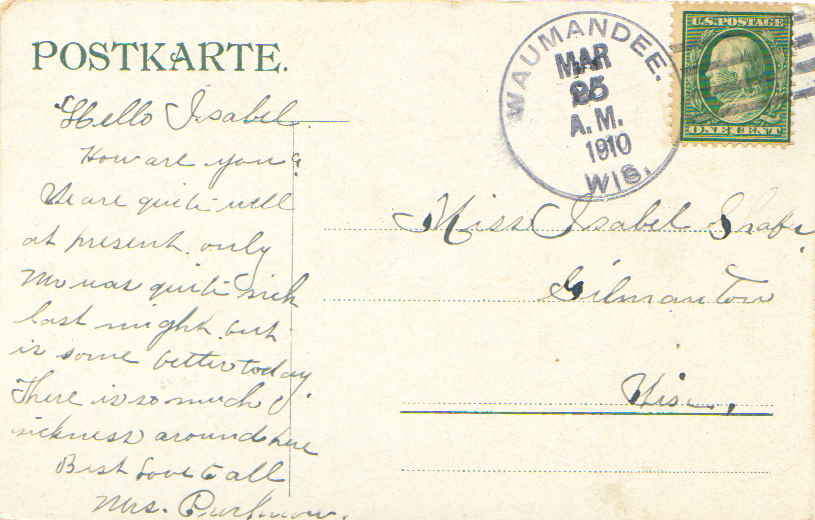 POSTKARTE.
WAUMANDEE.
MAR
25
A.M.
1910
WIS.
U.S. POSTAGE
ONE CENT
Hello Isabel.
How are you?
We are quite well
at present. only
was quite sick
last night. but
is some better today.
There is so much
sickness around here
Best Love to all
Mrs.
Miss Isabel
Gilmanton
Wisc.,